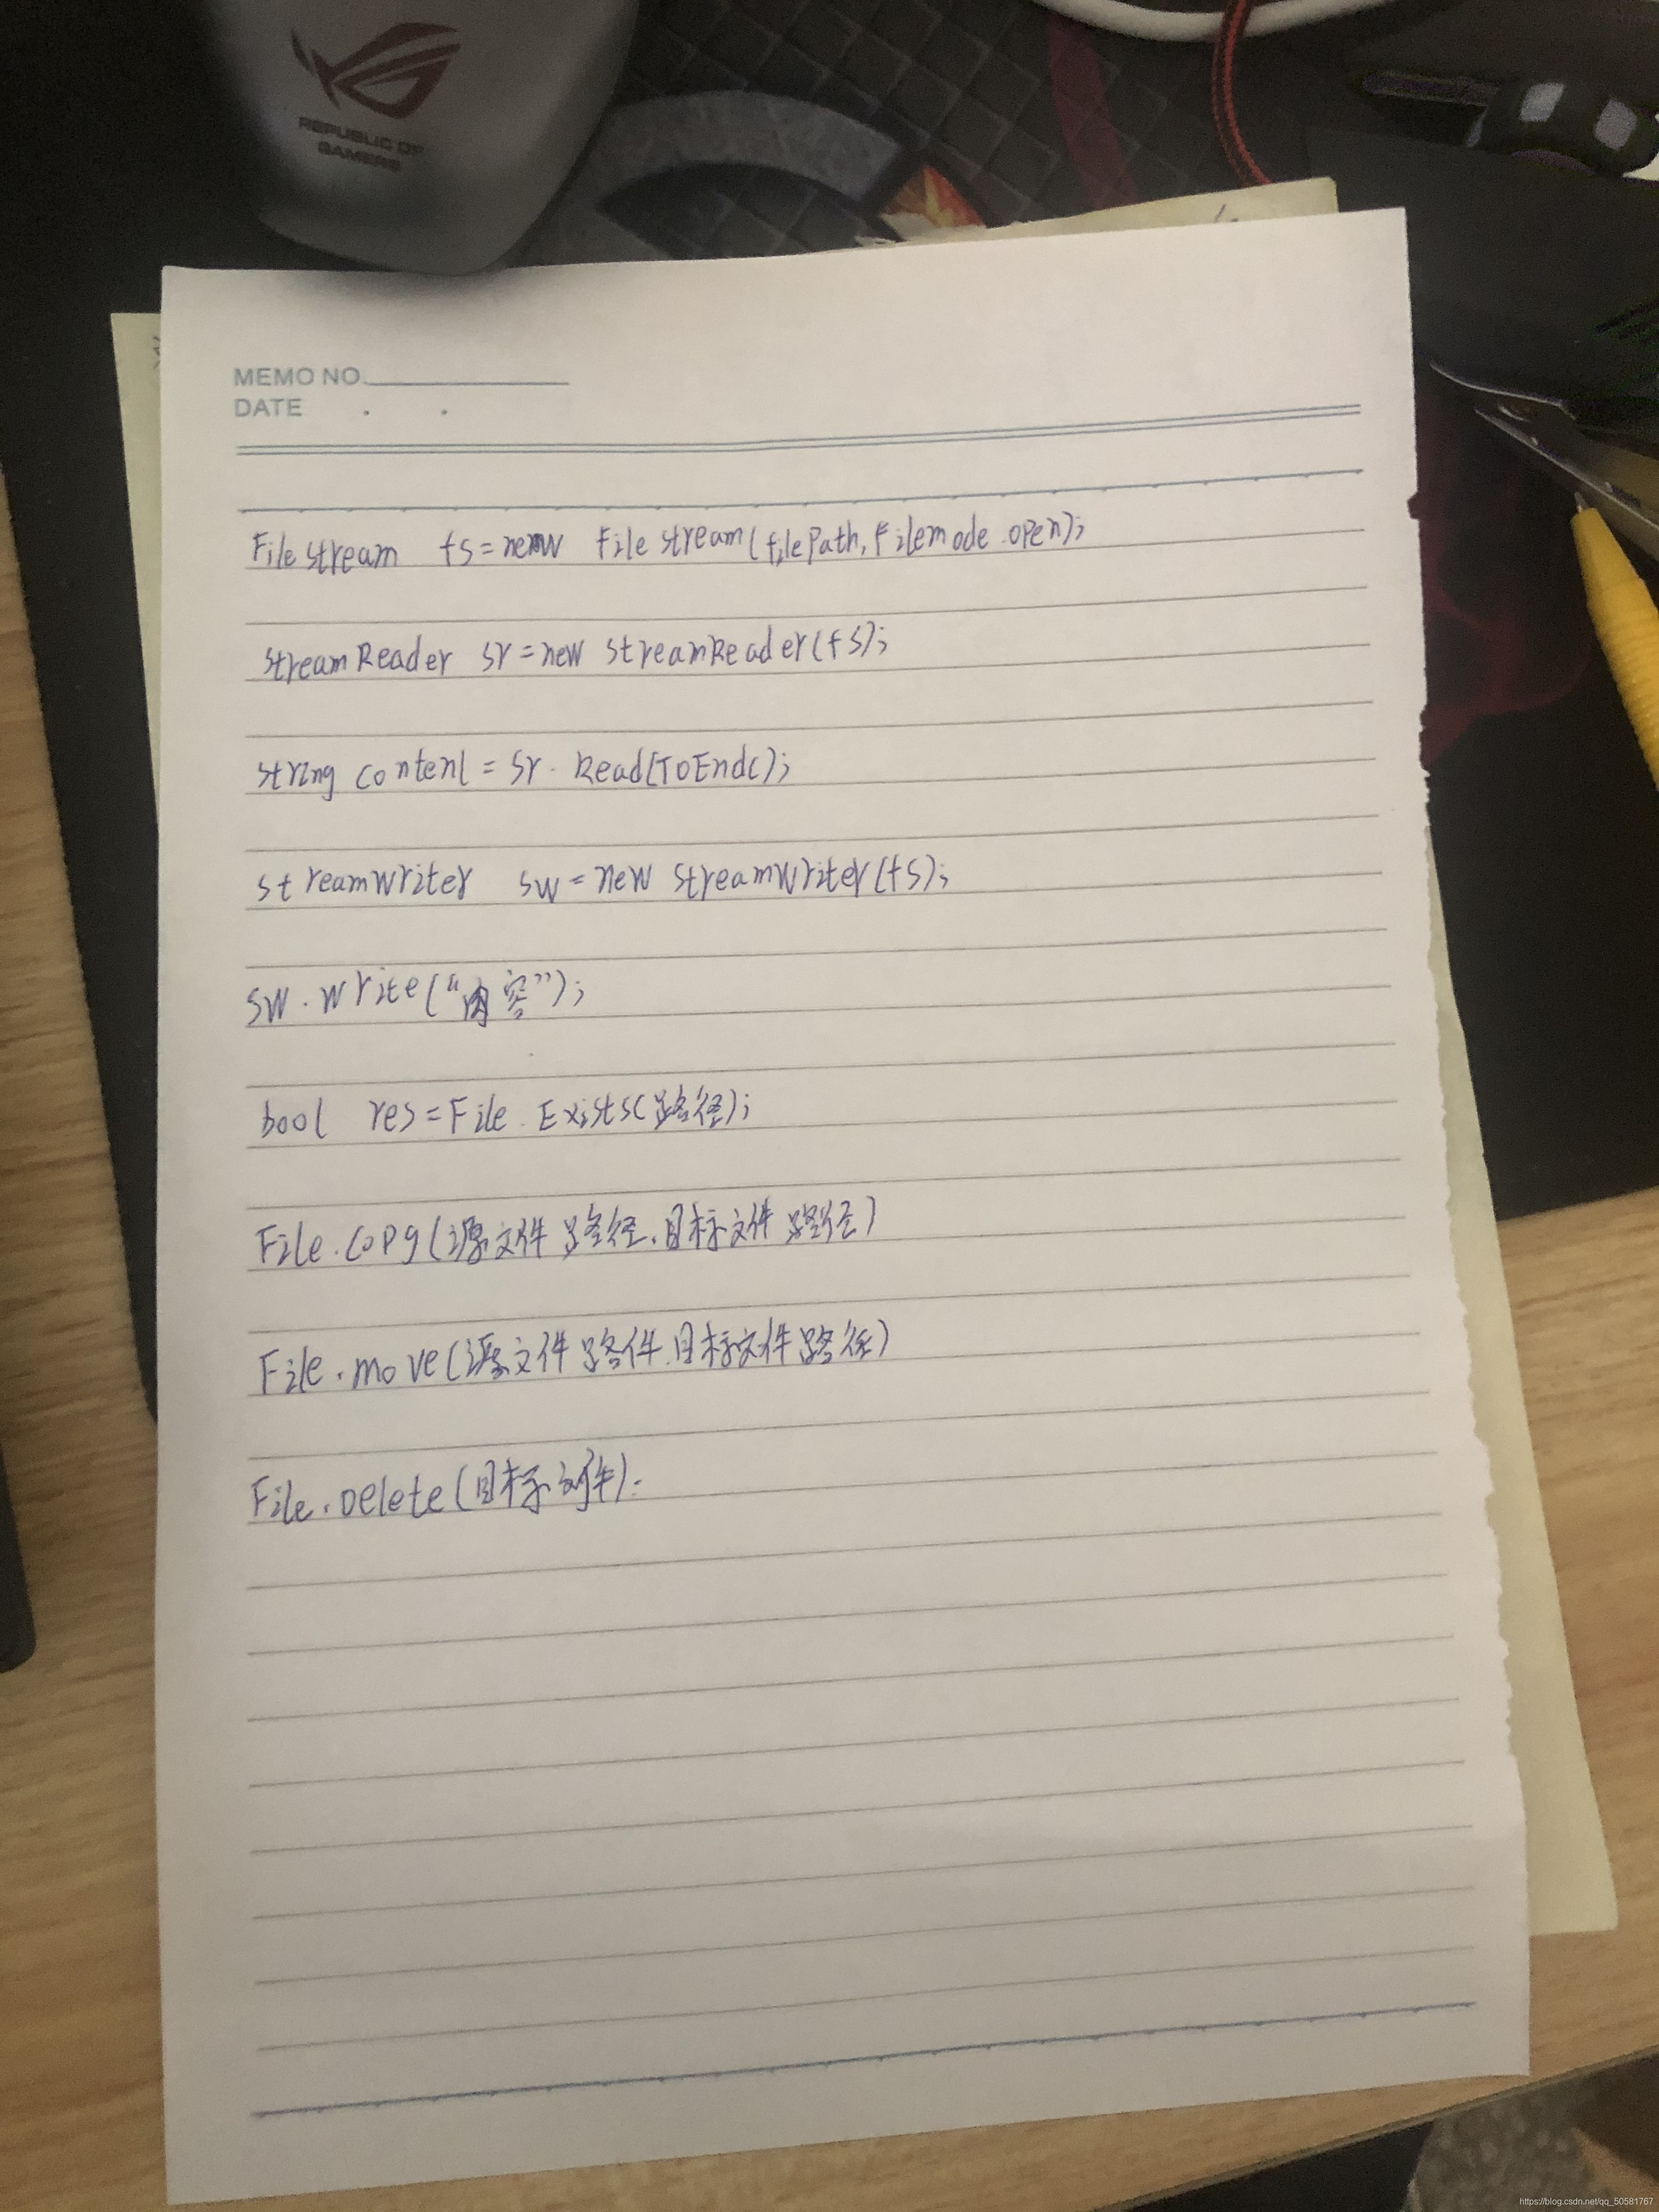 REPUBLIC OF
GAMERS
MEMO NO.
DATE . .
File stream fs=new File stream(filePath,Filemode.open);
streamReader sr=new streamReader(fs);
string content=sr.Read(ToEnd();
streamwriter sw=new streamwriter(fs);
sw.write(“内容”);
bool res=File.Exists(路径);
File.copy(源文件路径,目标文件路径)
File.move(源文件路件,目标文件路径)
File.Delete(目标文件).
https://blog.csdn.net/qq_50581767